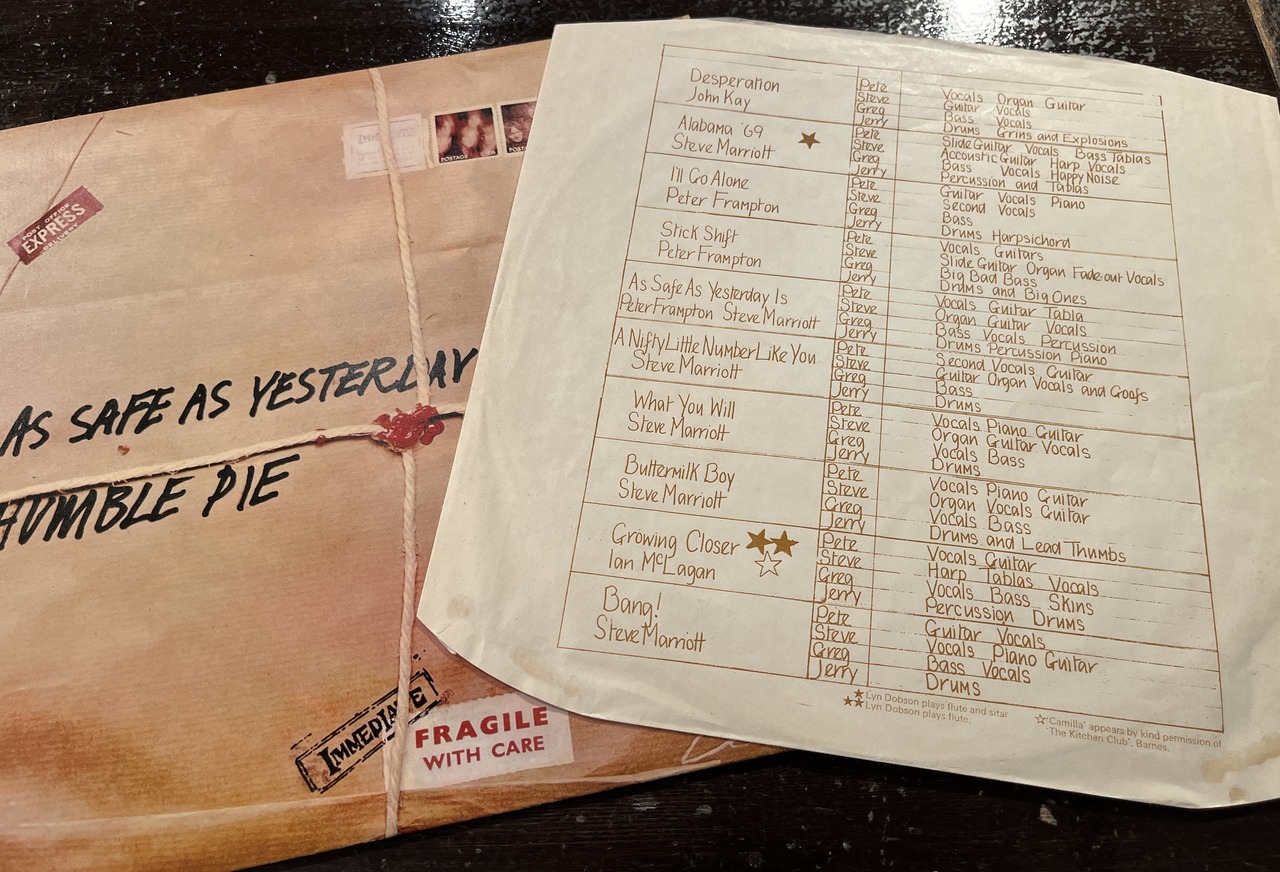 POST OFFICE
EXPRESS
DELIVERY
POSTAGE
POSTAGE
AS SAFE AS YESTERDAY
HUMBLE PIE
IMMEDIATE
FRAGILE
WITH CARE
Desperation
John Kay
Pete Vocals Organ Guitar
Steve Guitar Vocals
Greg Bass Vocals
Jerry Drums Grins and Explosions
Alabama '69
Steve Marriott
Pete Slide Guitar Vocals Bass Tablas
Steve Accoustic Guitar Harp Vocals
Greg Bass Vocals Happy Noise
Jerry Percussion and Tablas
I'll Go Alone
Peter Frampton
Pete Guitar Vocals Piano
Steve Second Vocals
Greg Bass
Jerry Drums Harpsichord
Stick Shift
Peter Frampton
Pete Vocals Guitars
Steve Slide Guitar Organ Fade-out Vocals
Greg Big Bad Bass
Jerry Drums and Big Ones
As Safe As Yesterday Is
Peter Frampton Steve Marriott
Pete Vocals Guitar Tabla
Steve Organ Guitar Vocals
Greg Bass Vocals Percussion
Jerry Drums Percussion Piano
A Nifty Little Number Like You
Steve Marriott
Pete Second Vocals Guitar
Steve Guitar Organ Vocals and Goofs
Greg Bass
Jerry Drums
What You Will
Steve Marriott
Pete Vocals Piano Guitar
Steve Organ Guitar Vocals
Greg Vocals Bass
Jerry Drums
Buttermilk Boy
Steve Marriott
Pete Vocals Piano Guitar
Steve Organ Vocals Guitar
Greg Vocals Bass
Jerry Drums and Lead Thumbs
Growing Closer
Ian McLagan
Pete Vocals Guitar
Steve Harp Tablas Vocals
Greg Vocals Bass Skins
Jerry Percussion Drums
Bang!
Steve Marriott
Pete Guitar Vocals
Steve Vocals Piano Guitar
Greg Bass Vocals
Jerry Drums
★ Lyn Dobson plays flute and sitar
★★ Lyn Dobson plays flute.
☆ 'Camilla' appears by kind permission of
'The Kitchen Club', Barnes.